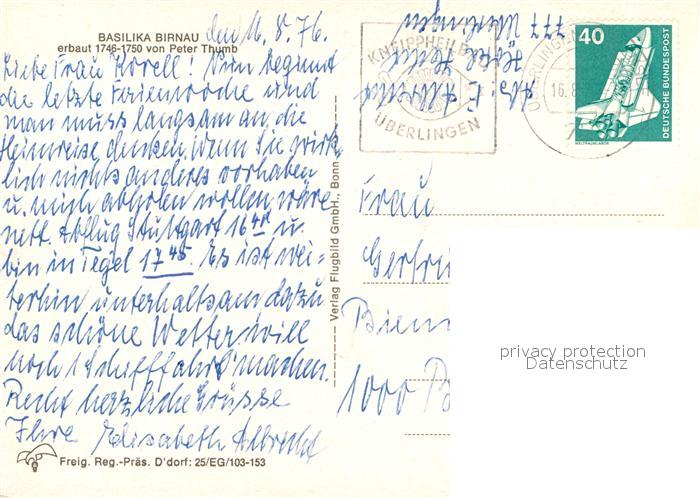 BASILIKA BIRNAU
erbaut 1746-1750 von Peter Thumb
den 16.8.76.
Liebe Frau Korell! Nun beginnt
die letzte Ferienwoche und
man muss langsam an die
Heimreise denken. Wenn Sie wirk-
lich nichts anderes vorhaben
u. mich abholen wollen, wäre
nett. Abflug Stuttgart 16 u.
bin in Tegel 17 45. Es ist wei-
terhin unterhaltsam dazu
das schöne Wetter, will
noch 1 Schifffahrt machen.
Recht herzliche Grüsse
Ihre Elisabeth Albrecht
Freig. Reg.-Präs. D'dorf: 25/EG/103-153
Verlag Flugbild GmbH., Bonn
Abs. E. Albrecht
Hotel
777 Überlingen
KNEIPPHEILB
ÜBERLINGEN
ÜBERLINGEN
16.8
7
40
DEUTSCHE BUNDESPOST
WELTRAUMLABOR
Frau
Gertru
Biem
1000 B
privacy protection
Datenschutz